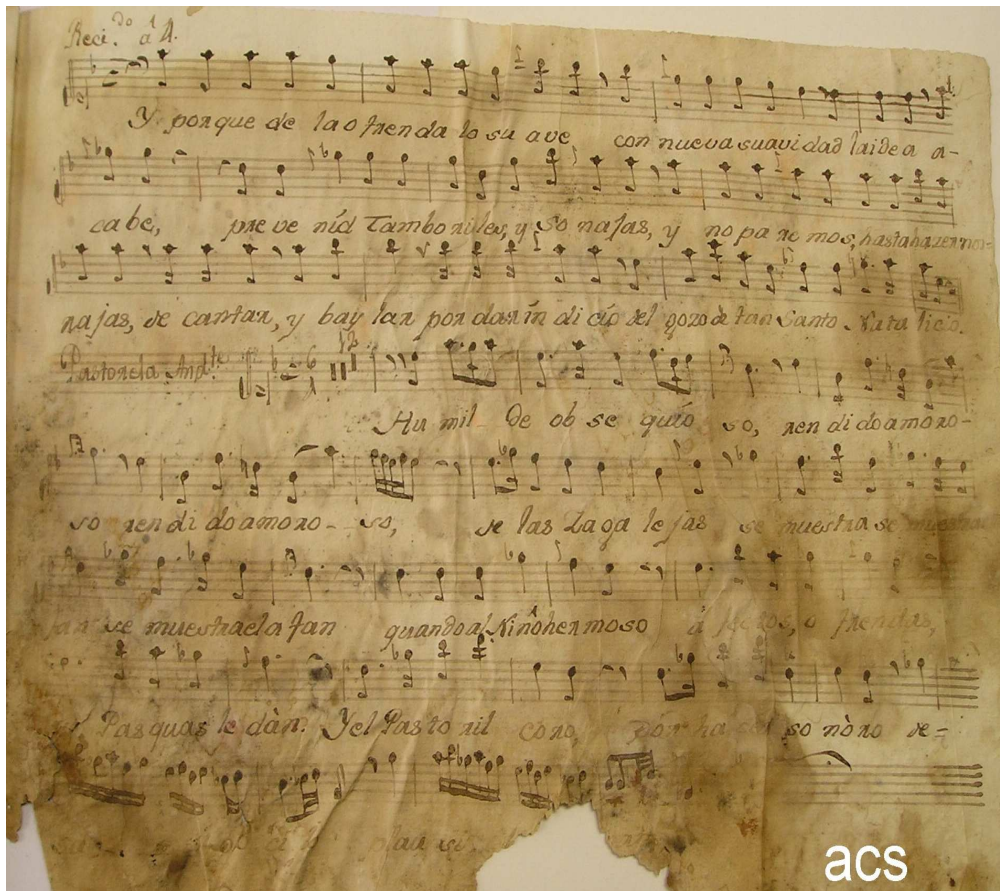 Reci.do a 4.
Y porque de la ofrenda lo su ave con nueva suavidad la idea a-
cabe, pre ve nid Tamboriles, y So najas, y no pa re mos, hasta hazer nos
rajas, de cantar, y bay lar por dar in di cio del gozo de tan Santo Nata licio.
Pastorela And.te 12
Hu mil de ob se quio so, ren di do amoro-
so ren di do amoro- so, de las Zaga le jas se muestra se muestra
se muestra el afan quando al Niño hermoso afectos, ofrendas,
Pasquas le dàn. Y el Pasto ril coro, Por ha so nòro de-
acs